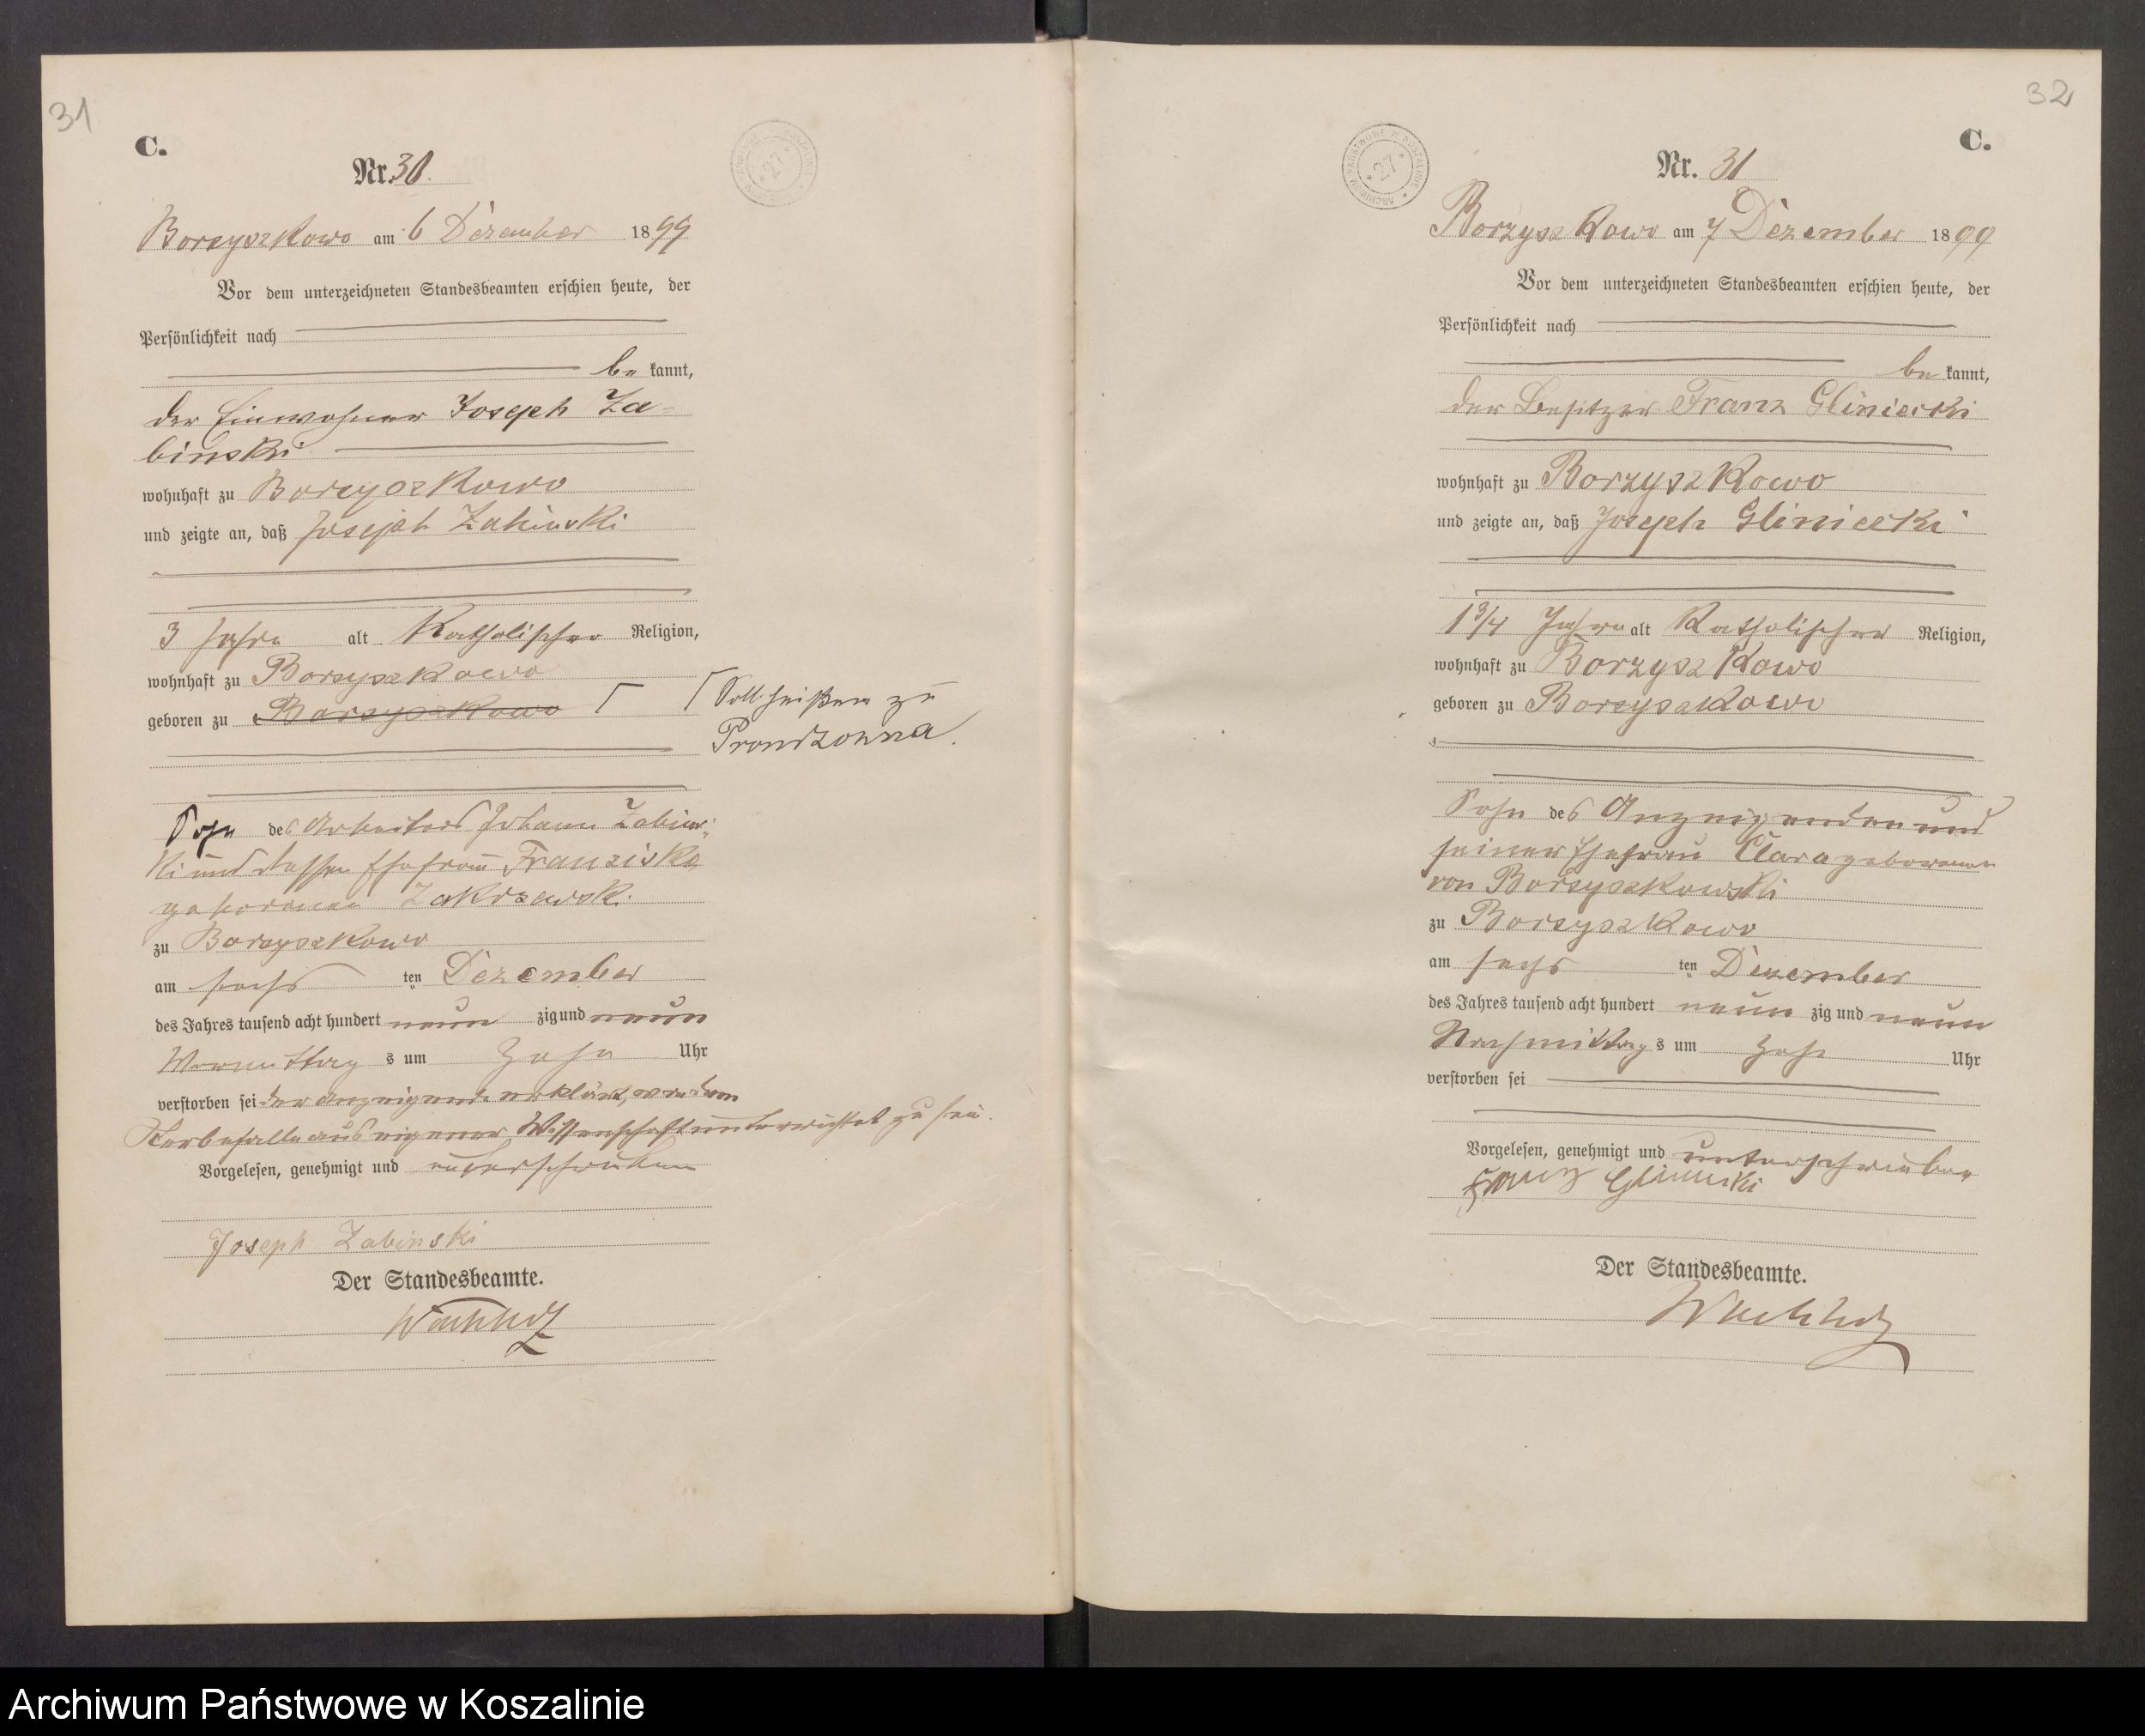 31
C.
Nr. 30.
Borzyszkowo am 6 Dezember 1899
Vor dem unterzeichneten Standesbeamten erschien heute, der
Persönlichkeit nach
be kannt,
der Einwohner Joseph Za-
binski
wohnhaft zu Borzyszkowo
und zeigte an, daß Joseph Zabinski
3 Jahre alt Katholischer Religion,
wohnhaft zu Borzyszkowo
geboren zu Borzyszkowo
Soll heißen zu
Prondzonna.
Sohn des Arbeiters Johann Zabins-
ki und dessen Ehefrau Franziska
geborenen Zakrzewski
zu Borzyszkowo
am sechs ten Dezember
des Jahres tausend acht hundert neun zig und neun
Vormittag s um Zehn Uhr
verstorben sei der Anzeigende erklärt, von dem
Sterbefalle aus eigener Wissenschaft unterrichtet zu sein.
Vorgelesen, genehmigt und unterschrieben
Joseph Zabinski
Der Standesbeamte.
ARCHIWUM PAŃSTWOWE W KOSZALINIE
27
32
C.
Nr. 31
Borzyszkowo am 7 Dezember 1899
Vor dem unterzeichneten Standesbeamten erschien heute, der
Persönlichkeit nach
be kannt,
der Besitzer Franz Gliniecki
wohnhaft zu Borzyszkowo
und zeigte an, daß Joseph Gliniecki
1 3/4 Jahre alt Katholischer Religion,
wohnhaft zu Borzyszkowo
geboren zu Borzyszkowo
Sohn des Anzeigenden und
seiner Ehefrau Clara geborenen
von Borzyszkowski
zu Borzyszkowo
am sechs ten Dezember
des Jahres tausend acht hundert neun zig und neun
Nachmittag s um Zehn Uhr
verstorben sei
Vorgelesen, genehmigt und unterschrieben
Franz Gliniecki
Der Standesbeamte.
ARCHIWUM PAŃSTWOWE W KOSZALINIE
27
Archiwum Państwowe w Koszalinie